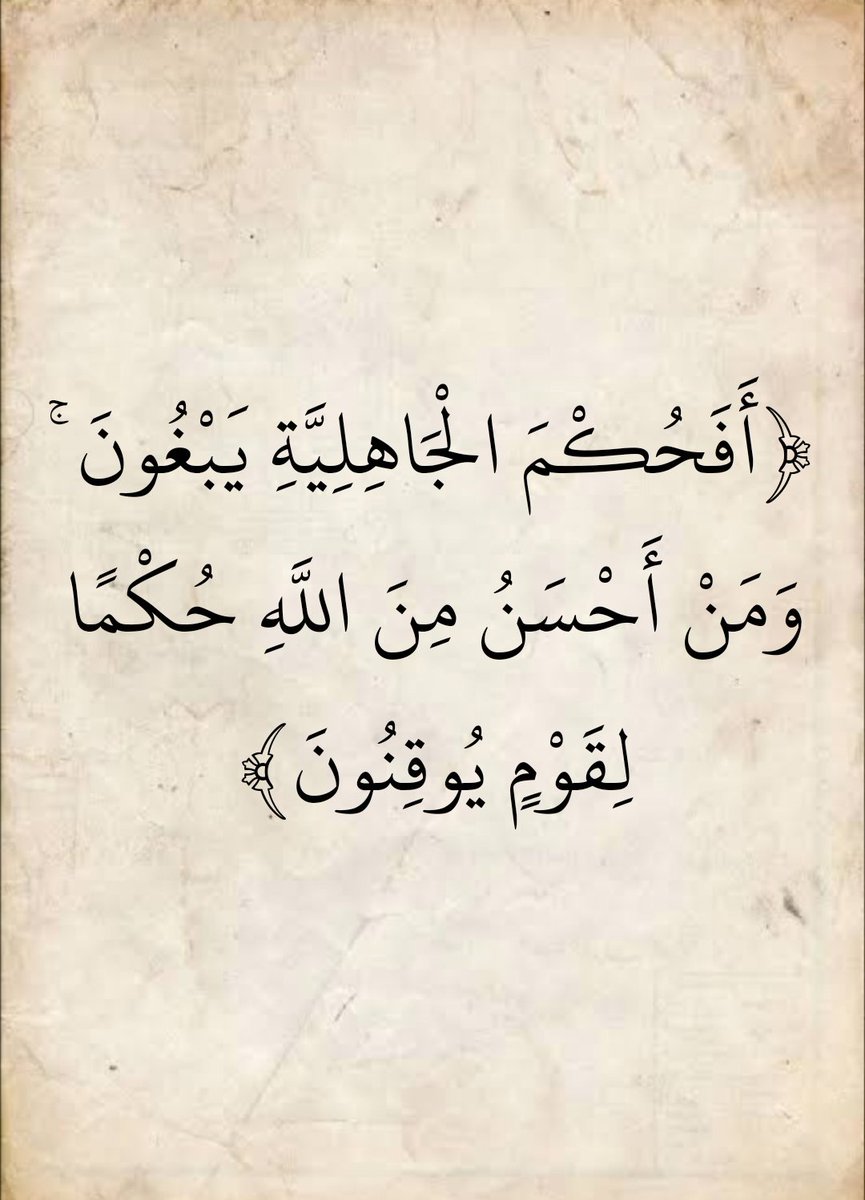 ﴿أَفَحُكْمَ الْجَاهِلِيَّةِ يَبْغُونَ ۚ
وَمَنْ أَحْسَنُ مِنَ اللَّهِ حُكْمًا
لِقَوْمٍ يُوقِنُونَ﴾